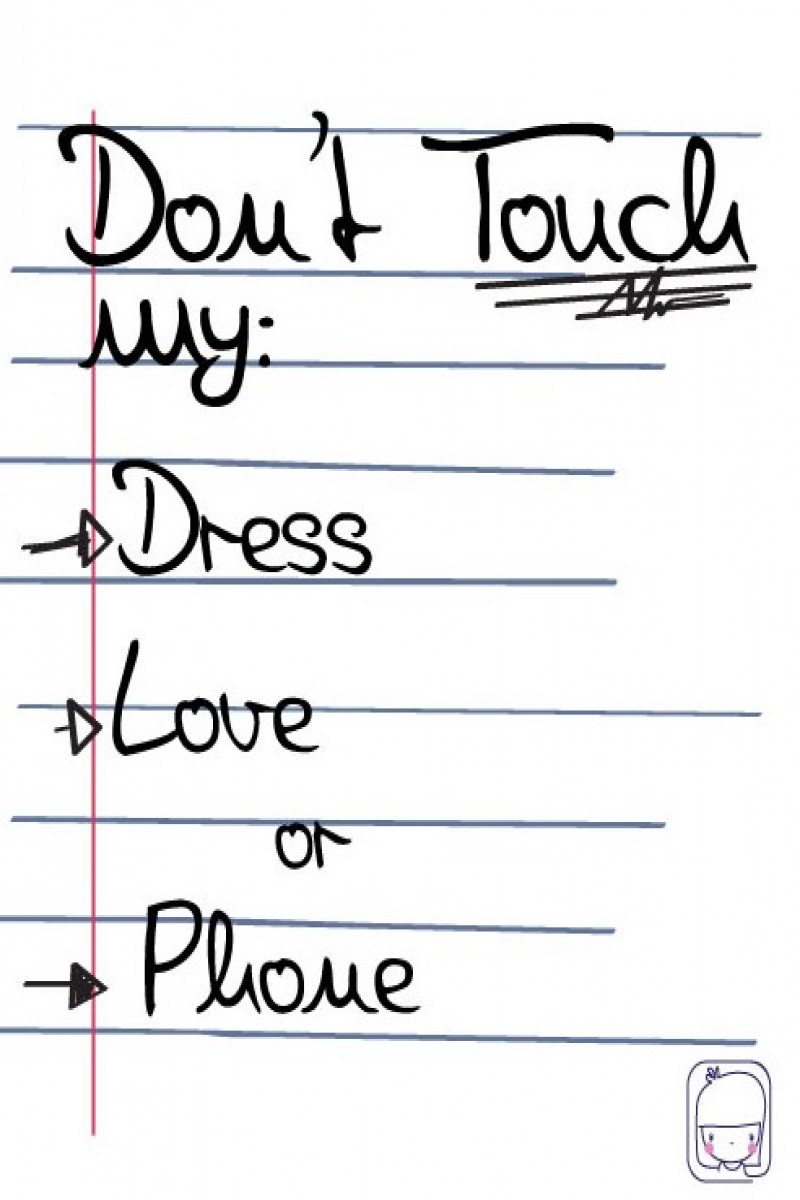 Don't Touch
my:
Dress
Love
or
Phone